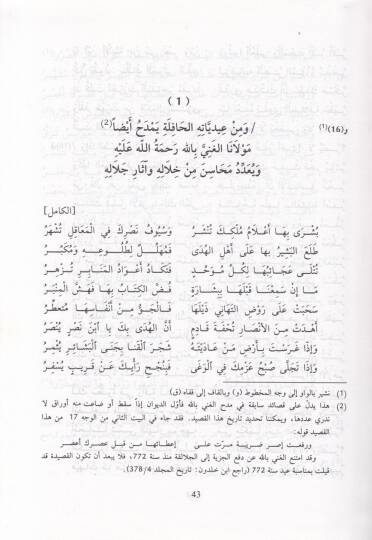 ( 1 )
و(16)(1) / وَمِنْ عِيدِيَّاتِهِ الحَافِلَةِ يَمْدَحُ أَيْضاً(2)
مَوْلَانَا الغَنِيَّ بِالله رَحمَةُ اللَّه عَلَيْهِ
وَيُعَدِّدُ مَحَاسِنَ مِنْ خِلَالِهِ وآثَارِ جَلَالِهِ
[الكامل]
بُشْرَى بِهَا أَعْلَامُ مُلْكِكَ تُنْشَرُ وَسُيُوفُ نَصْرِكَ فِي المَعَاقِلِ تُشْهَرُ
طَلَعَ البَشِيرُ بها عَلَى أَهْلِ الهُدَى فَمُهَلِّلٌ لِطُلُوعِهِ وَمُكَبِّرُ
تُتْلَى عَجَائِبُهَا لِكُلِّ مُوَحِّدٍ فَتَكَادُ أَعْوَادُ المَنَابِرِ تُزْهِرُ
مَا إِنْ سَمِعْنَا قَبْلَهَا بِبِشَارَةٍ فُضَّ الكِتَابُ بِهَا فَهَشَّ المِنْبَرُ
سَحَبَتْ عَلَى رَوْضِ التهَانِي ذَيْلَهَا فَالجَوُّ مِنْ أَنْفَاسِهَا مُتَعَطِّرُ
أَهْدَتْ مِنَ الأنْصَارِ تُحْفَةَ قَادِمٍ أَنَّ الهُدَى بِكَ يا ابْنَ نَصْرٍ يُنْصَرُ
وَإِذَا غَرَسْتَ بِأَرْضِ مَنْ عَادَيْتَهُ شَجَرَ القَنَا بِجَنَى البَشَائِرِ يُثْمِرُ
وَإِذَا تَجَلَّى صُبْحُ عَزْمِكَ فِي الوَغَى فَبِنُجْحِ رَأْيِكَ عَنْ قَرِيبٍ يُسْفِرُ
(1) نشير بالواو إلى وجه المخطوط (و) وبالقاف إلى قفاه (ق)
(2) هذا يدلّ على قصائد سابقة في مدح الغني بالله فأوّل الديوان إذاً سقط أو ضاعت منه أوراق لا
ندري عددها، ويمكننا تحديد تاريخ هذا القصيد. فقد جاء في البيت الثاني من الوجه 17 من هذا
القصيد قوله:
ورفعت إصر ضريبة مرّت على إعطائها من قبل عصرك أعصر
وقد امتنع الغني بالله عن دفع الجزية إلى الجلالقة منذ سنة 772، فلا يبعد أن تكون القصيدة قد
قيلت بمناسبة عيد سنة 772 (راجع ابن خلدون: تاريخ المجلد 378/4).
43